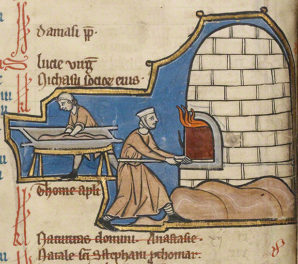 damasi pp.
lucie uirg
Nichasii socior eius.
Thome apli
Natiuitas domini. Anastasie.
Natale sci Stephani prhomar.